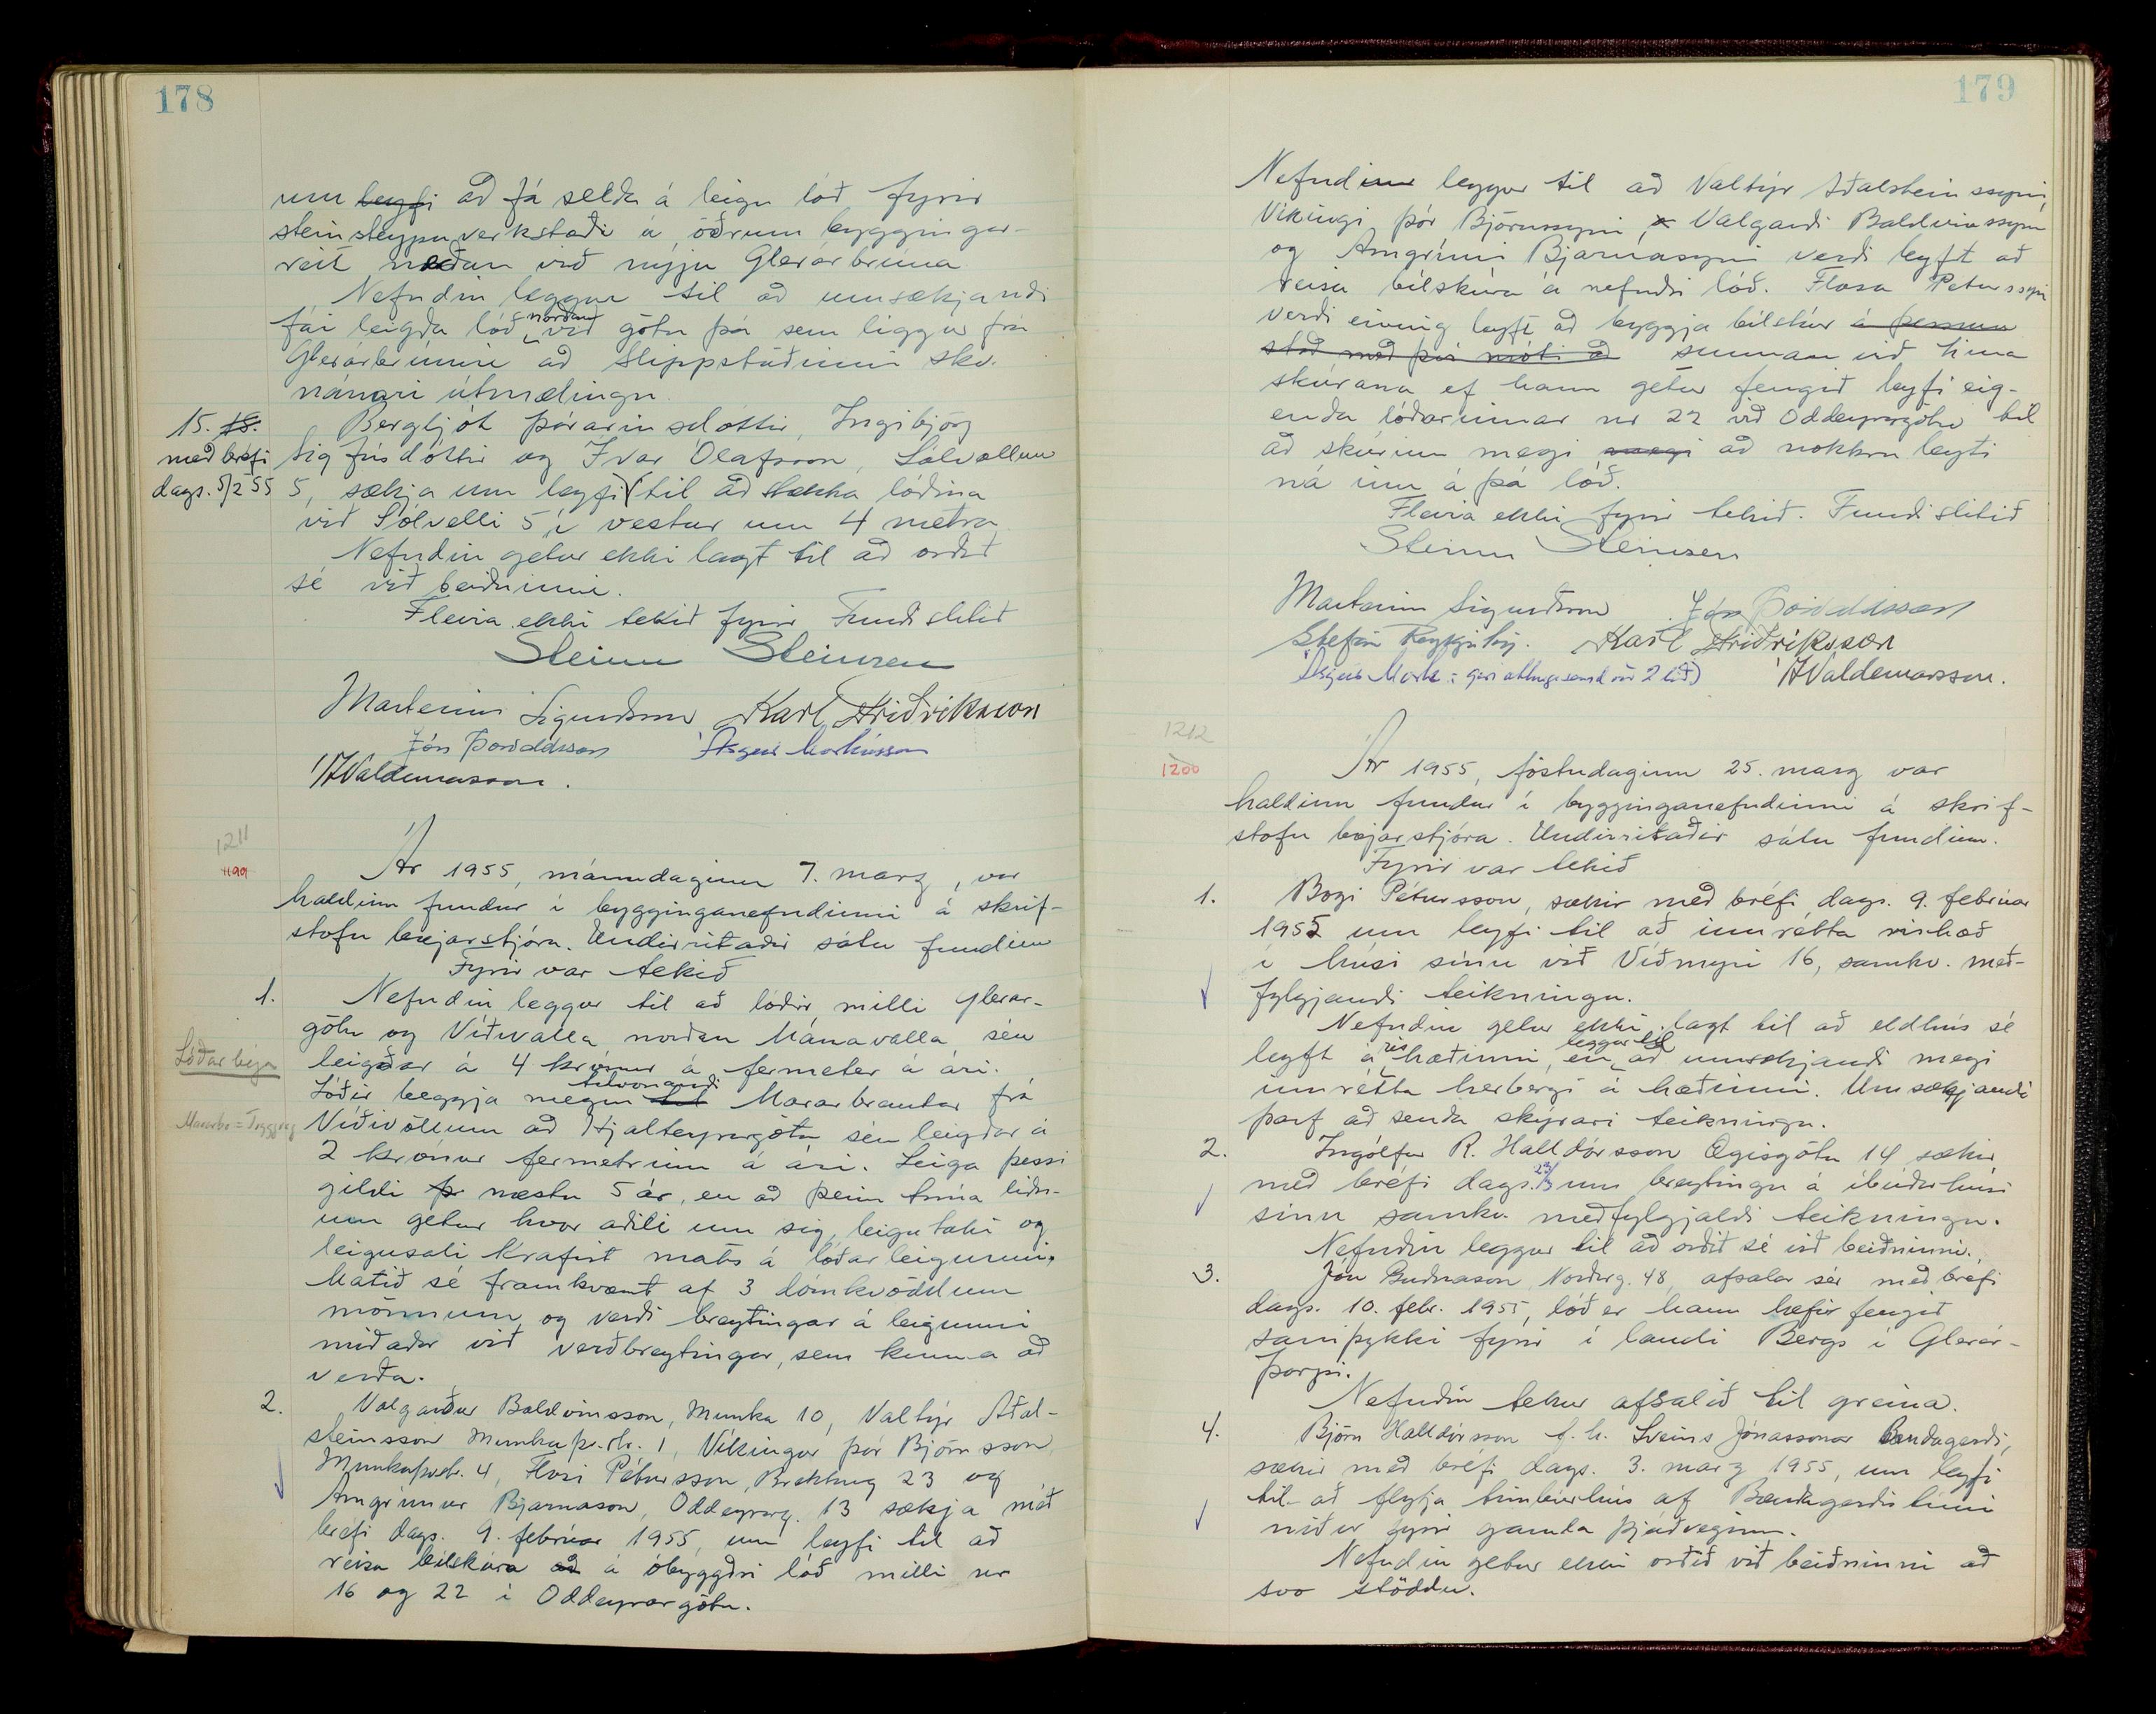 178
um leyfi að fá selda á leigu lóð fyrir
steinsteypuverkstæði á öðrum byggingar-
reit neðan við nýju Glerárbrúna.
Nefndin leggur til að umsækjandi
fái leigða lóð norðan við götu þá sem liggur frá
Glerárbrúnni að Slippstöðinni skv.
nánari útmælingu.
15. 18. Bergljót Þórarinsdóttir, Ingibjörg
með bréfi Sigfúsdóttir og Ívar Ólafsson, Sólvöllum
dags. 5/2 55 5, sækja um leyfi til að stækka lóðina
við Sólvelli 5 í vestur um 4 metra.
Nefndin getur ekki lagt til að orðið
sé við beiðninni.
Fleira ekki tekið fyrir Fundi slitið
Steinn Steinsen
Marteinn Sigurðsson Karl Friðriksson
Jón Þorvaldsson Ásgeir Markússon
Á Valdemarsson.
1211
1199
Ár 1955, mánudaginn 7. marz, var
haldinn fundur í bygginganefndinni á skrif-
stofu bæjarstjóra. Undirritaðir sátu fundinn
Fyrir var tekið
1. Nefndin leggur til að lóðir milli Glerár-
götu og Víðivalla norðan Mánavalla séu
Lóðarleiga leigðar á 4 krónur á fermeter á ári.
Lóðir beggja megin til tilvonandi Mararbrautar frá
Mararbr = Tryggvag Víðivöllum að Hjalteyrargötu séu leigðar á
2 krónur fermetrinn á ári. Leiga þessi
gildi þ næstu 5 ár, en að þeim tíma liðn-
um getur hvor aðili um sig, leigutaki og
leigusali krafist mats á lóðarleigunni.
Matið sé framkvæmt af 3 dómkvöddum
mönnum og verði breytingar á leigunni
miðaðar við verðbreytingar, sem kunna að
verða.
2. Valgarður Baldvinsson, Munka 10, Valtýr Aðal-
steinsson Munkaþv.str. 1, Víkingur Þór Björnsson
Munkaþvstr. 4, Flosi Pétursson, Brekkug 23 og
Arngrímur Bjarnason, Oddeyrarg. 13 sækja með
bréfi dags. 9. febrúar 1955, um leyfi til að
reisa bílskúra að á óbyggðri lóð milli nr
16 og 22 í Oddeyrargötu.
179
Nefndinn leggur til að Valtýr Aðalsteinssyni,
Víkingi Þór Björnssyni, Valgarði Baldvinssyni
og Arngrími Bjarnasyni verði leyft að
reisa bílskúra á nefndri lóð. Flosa Péturssyni
verði einnig leyft að byggja bílskúr á þessum
stað með því móti að sunnan við hina
skúrana ef hann getur fengið leyfi eig-
enda lóðarinnar nr 22 við Oddeyrargötu til
að skúrinn megi megi að nokkru leyti
ná inn á þá lóð.
Fleira ekki fyrir tekið. Fundi slitið
Steinn Steinsen
Marteinn Sigurðsson Jón Þorvaldsson
Stefán Reykjalín. Karl Friðriksson
Ásgeir Mark: geri athugasemd við 2 lið) Á Valdemarsson.
1212
1200
Ár 1955, föstudaginn 25. marz var
haldinn fundur í bygginganefndinni á skrif-
stofu bæjarstjóra. Undirritaðir sátu fundinn.
Fyrir var tekið
1. Bogi Pétursson, sækir með bréfi dags. 9. febrúar
1955 um leyfi til að innrétta rishæð
í húsi sínu við Víðimýri 16, samkv. með-
fylgjandi teikningu.
Nefndin getur ekki lagt til að eldhús sé
leyft á rishæðinni, en leggur til að umsækjandi megi
innrétta herbergi á hæðinni. Umsækjandi
þarf að senda skýrari teikningu.
2. Ingólfur R. Halldórsson Ægisgötu 14 sækir
með bréfi dags. um breytingu á íbúðarhúsi
sínu samkv. meðfylgjaldi teikningu.
Nefndin leggur til að orðið sé við beiðninni.
3. Jón Guðnason Norðurg. 48, afsalar sér með bréfi
dags. 10. febr. 1955, lóð er hann hefir fengið
samþykki fyrir í landi Bergs í Glerár-
þorpi.
Nefndin tekur afsalið til greina.
4. Björn Halldórsson f.h. Sveins Jónassonar Bandagerði,
sækir með bréfi dags. 3. marz 1955, um leyfi
til að flytja timburhús af Bandagerðistúni
niður fyrir gamla þjóðveginn.
Nefndin getur ekki orðið við beiðninni að
svo stöddu.